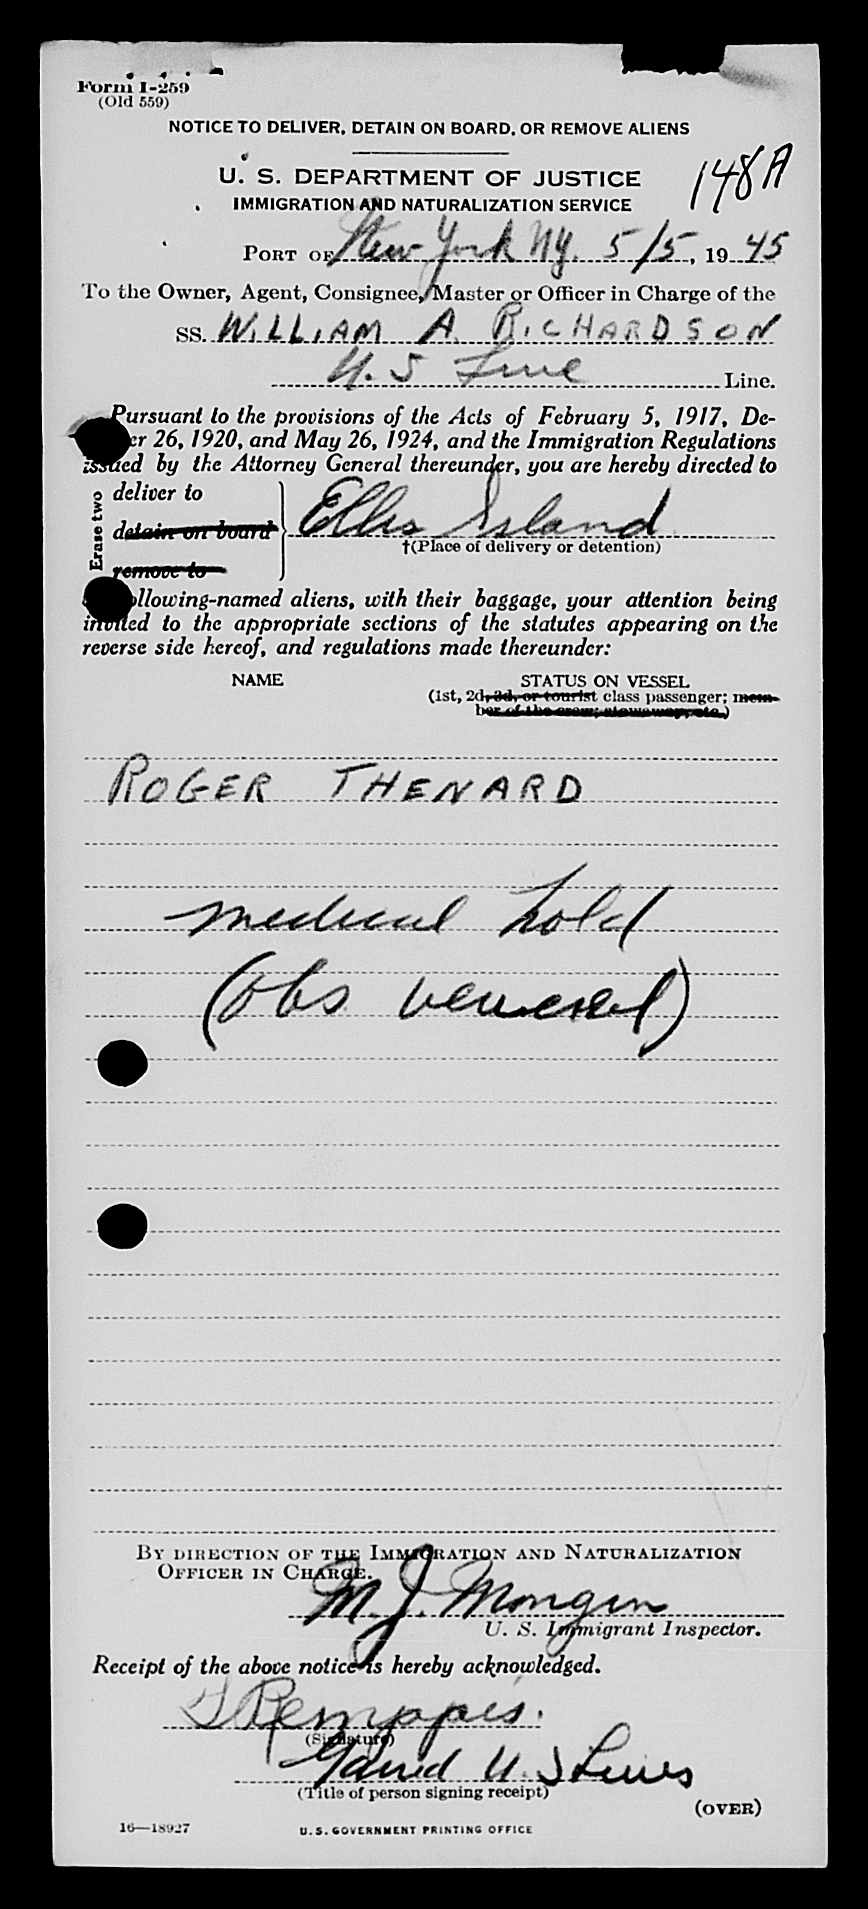 Form I-259
(Old 559)
NOTICE TO DELIVER, DETAIN ON BOARD, OR REMOVE ALIENS
148A
U. S. DEPARTMENT OF JUSTICE
IMMIGRATION AND NATURALIZATION SERVICE
PORT OF New York NY. 5/5, 1945
To the Owner, Agent, Consignee, Master or Officer in Charge of the
SS. WILLIAM A. RICHARDSON
U. S Line Line.
Pursuant to the provisions of the Acts of February 5, 1917, De-
er 26, 1920, and May 26, 1924, and the Immigration Regulations
issued by the Attorney General thereunder, you are hereby directed to
Erase two
deliver to
detain on board
remove to
Ellis Island
†(Place of delivery or detention)
llowing-named aliens, with their baggage, your attention being
invited to the appropriate sections of the statutes appearing on the
reverse side hereof, and regulations made thereunder:
NAME STATUS ON VESSEL
(1st, 2d, 3d, or tourist class passenger; mem-
ber of the crew; stowaway, etc.)
ROGER THENARD
medical hold
(obs venereal)
BY DIRECTION OF THE IMMIGRATION AND NATURALIZATION
OFFICER IN CHARGE.
M. J. Mongin
U. S. Immigrant Inspector.
Receipt of the above notice is hereby acknowledged.
(Signature)
U. S Lines
(Title of person signing receipt)
(OVER)
16—18927 U. S. GOVERNMENT PRINTING OFFICE